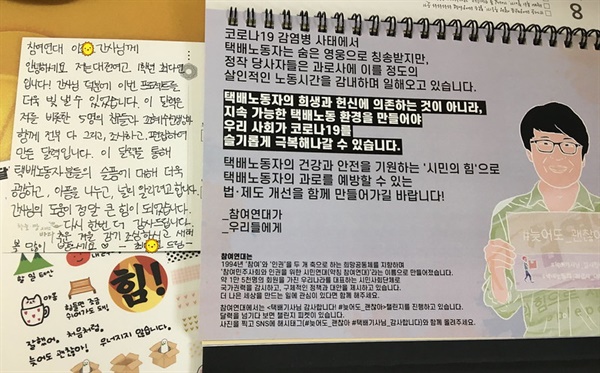 참여연대 이 간사님께
안녕하세요 저는 대전여고 1학년 최다
입니다! 간사님 덕분에 이번 프로젝트를
더욱 빛낼 수 있었습니다. 이 달력은
저를 비롯한 5명의 학생들과
함께 전부 다 그리고, 조사하고, 편집하여
만든 달력입니다. 이 달력을 통해
택배노동자분들의 슬픔에 대해 더욱
공감하고, 아픔을 나누고, 널리 알리려고 합니다.
간사님의 도움이 정말 큰 힘이 되었습니다.
다시 한번 더 감사드립니다.
추운 겨울 감기 조심하시고 새해
복 많이
힘들면 조금
쉬어가도 돼!
힘!
잘했어.
처음처럼,
늦어도 괜찮아!
무너지지 않습니다.
8
코로나19 감염병 사태에서
택배노동자는 숨은 영웅으로 칭송받지만,
정작 당사자들은 과로사에 이를 정도의
살인적인 노동시간을 감내하며 일해오고 있습니다.
택배노동자의 희생과 헌신에 의존하는 것이 아니라,
지속 가능한 택배노동 환경을 만들어야
우리 사회가 코로나19를
슬기롭게 극복해나갈 수 있습니다.
택배노동자의 건강과 안전을 기원하는 '시민의 힘'으로
택배노동자의 과로를 예방할 수 있는
법·제도 개선을 함께 만들어가길 바랍니다!
_참여연대가
_우리들에게
참여연대는
1994년 '참여'와 '인권'을 두 개 축으로 하는 희망공동체를 지향하며
'참여민주사회와 인권을 위한 시민연대(약칭 참여연대)'라는 이름으로 만들어졌습니다.
약 1만 5천명의 회원을 가진 우리나라를 대표하는 시민사회단체로
국가권력을 감시하고, 구체적인 정책과 대안을 제시하고 있습니다.
더 나은 세상을 만드는 일에 관심이 있다면 함께 해주세요.
참여연대에서는 <택배기사님 감사합니다! #늦어도 괜찮아>챌린지를 진행하고 있습니다.
달력을 넘기다 보면 챌린지 피켓이 있습니다.
사진을 찍고 SNS에 해시태그(#늦어도_괜찮아 #택배기사님_감사합니다)와 함께 올려주세요.
#늦어도 괜찮아